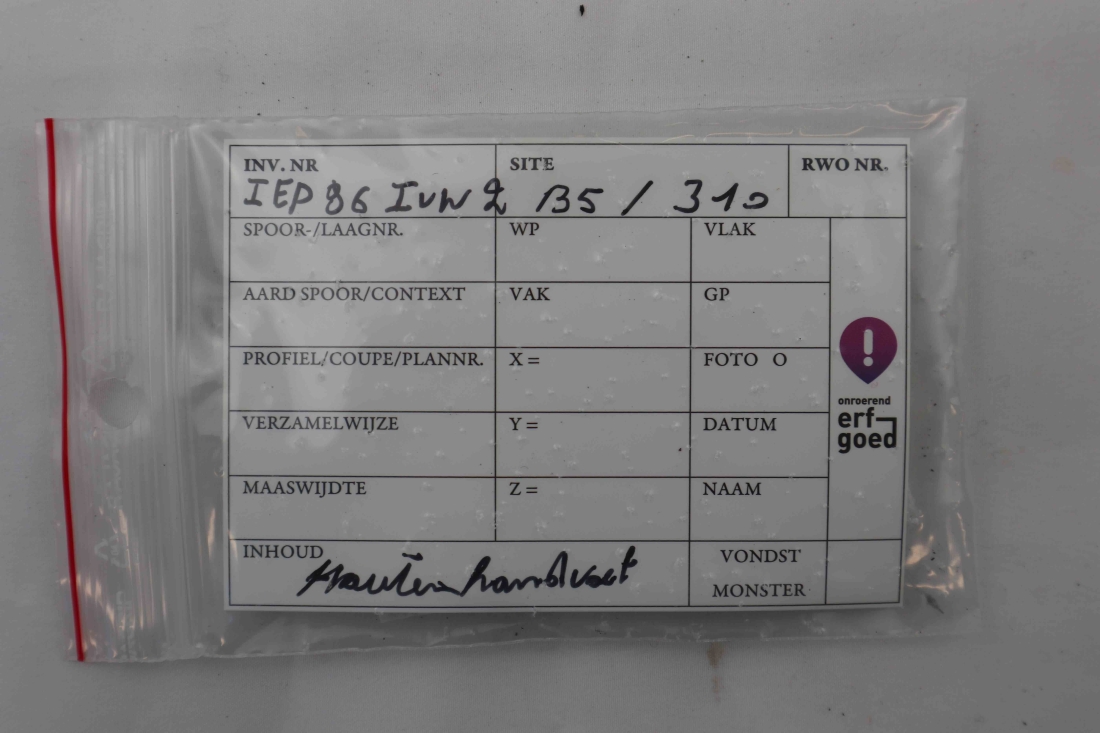 INV. NR SITE RWO NR.
IEP 86 IVW 2 B5 / 310
SPOOR-/LAAGNR. WP VLAK
AARD SPOOR/CONTEXT VAK GP
PROFIEL/COUPE/PLANNR. X = FOTO O
VERZAMELWIJZE Y = DATUM
MAASWIJDTE Z = NAAM
onroerend
erf
goed
INHOUD VONDST
Houten handvat
MONSTER